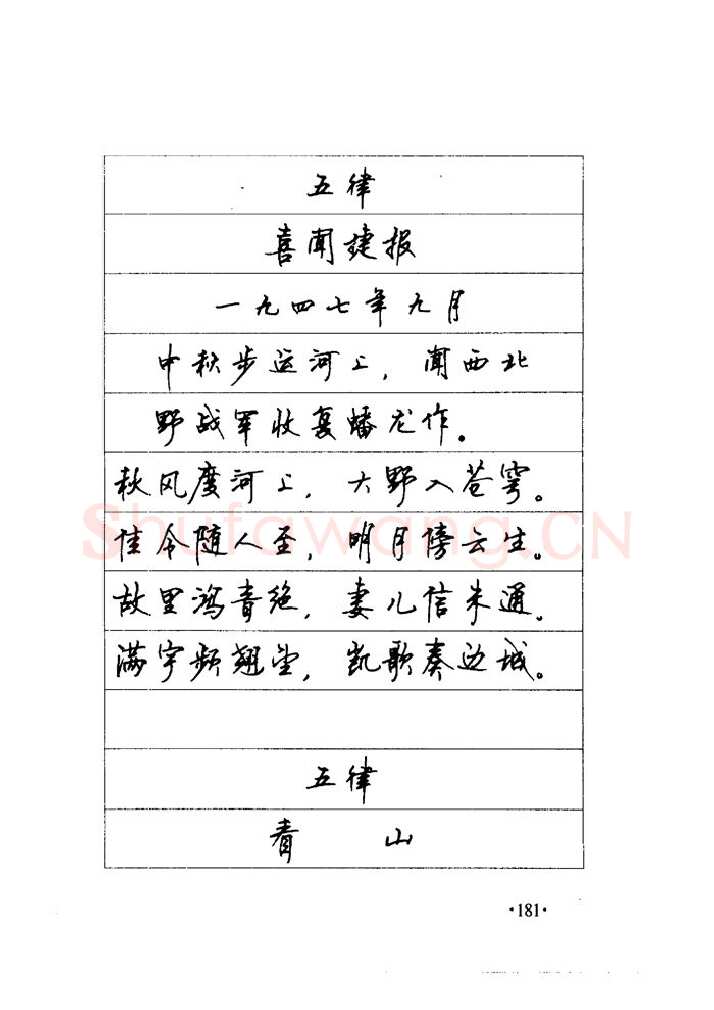 五律
喜闻捷报
一九四七年九月
中秋步运河上，闻西北
野战军收复蟠龙作。
秋风度河上，大野入苍穹。
佳令随人至，明月傍云生。
故里鸿音绝，妻儿信未通。
满宇频翘望，凯歌奏边城。
五律
看山
·181·
Shufawang.CN